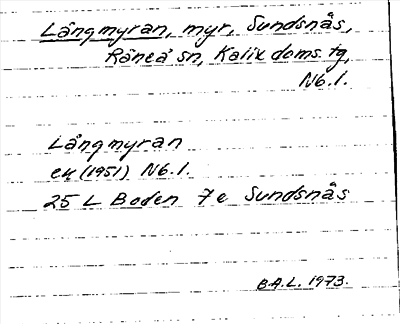 Långmyran, myr, Sundsnäs,
Råneå sn, Kalix doms. tg,
Nb.l.
Långmyran
ek (1951) Nb.l.
25 L Boden 7e Sundsnäs
B.A.L. 1973.